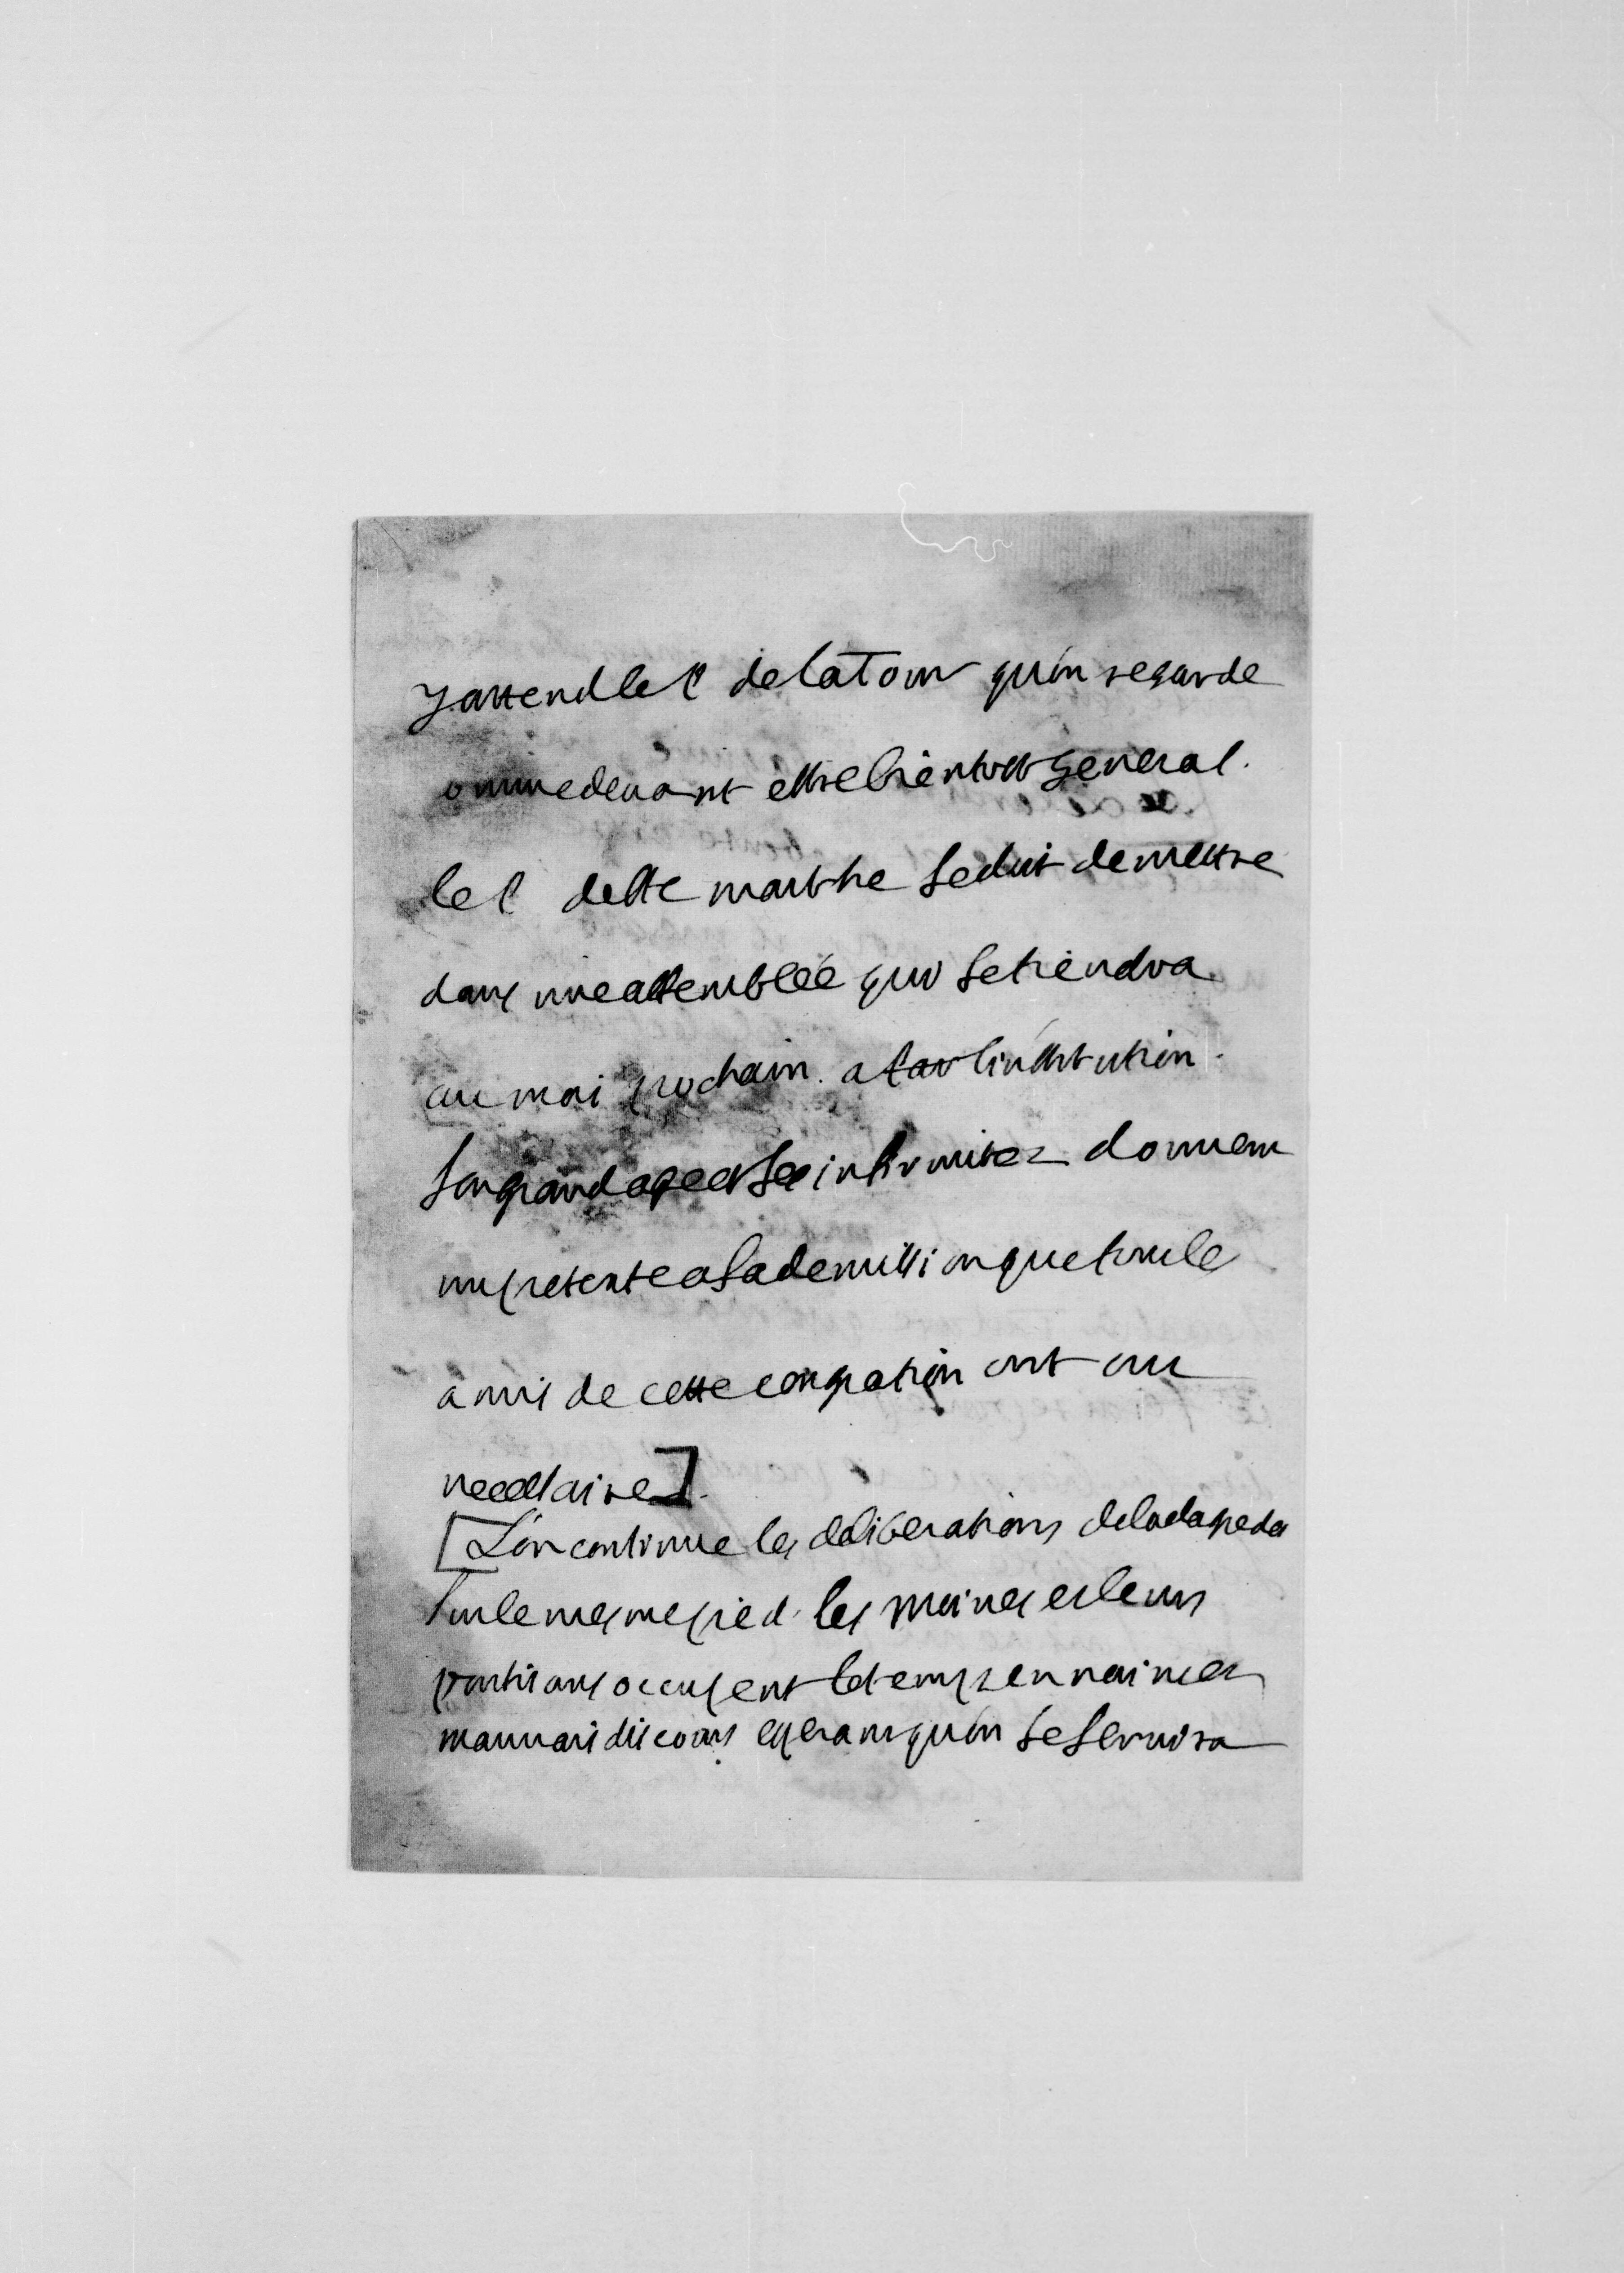 y attend le P de la Tour qu'on regarde
comme devant estre bientost general.
le P de Ste marthe se doit demettre
dans une assemblée qui se tiendra
au moi prochain. a l'institution.
son grand age et ses infirmitez donnent
un pretexte a sa demission que tous le
amis de cette congration ont cru
necessaire].
[L'on continue les deliberations de la
sur le mesme pied. les moines et leurs
partisans occupent le temps en vain et
mauvais discours esperant qu'on se servira